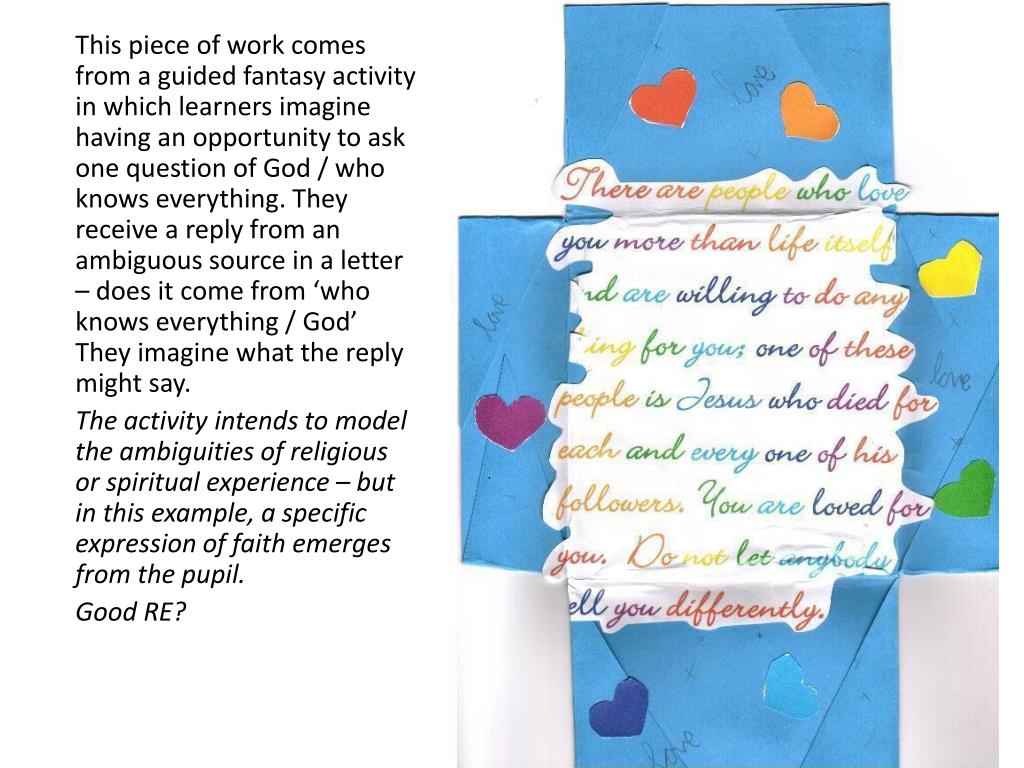 This piece of work comes
from a guided fantasy activity
in which learners imagine
having an opportunity to ask
one question of God / who
knows everything. They
receive a reply from an
ambiguous source in a letter
– does it come from ‘who
knows everything / God’
They imagine what the reply
might say.
The activity intends to model
the ambiguities of religious
or spiritual experience – but
in this example, a specific
expression of faith emerges
from the pupil.
Good RE?
love
There are people who love
you more than life itself
nd are willing to do any
ing for you; one of these
people is Jesus who died for
each and every one of his
followers. You are loved for
you. Do not let anybody
ell you differently.
love
love
love